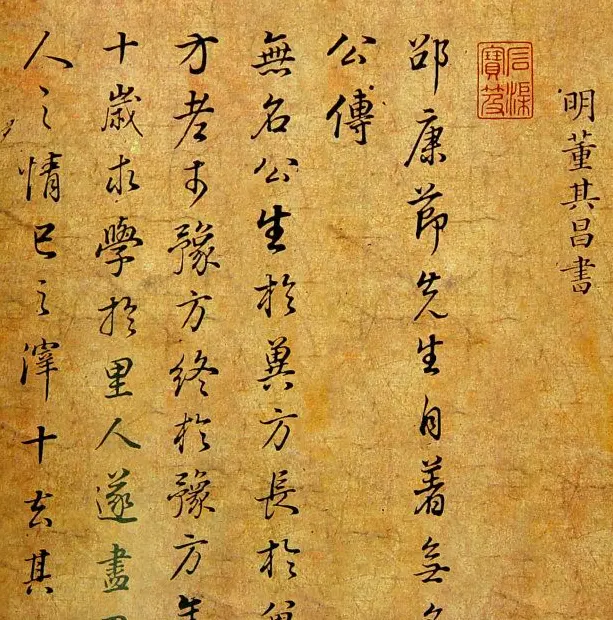 明董其昌書
石渠寶笈
邵康節先生自著無名
公傳
無名公生於冀方長於
方老於豫方終於豫方年
十歲求學於里人遂盡
人之情己之滓十去其